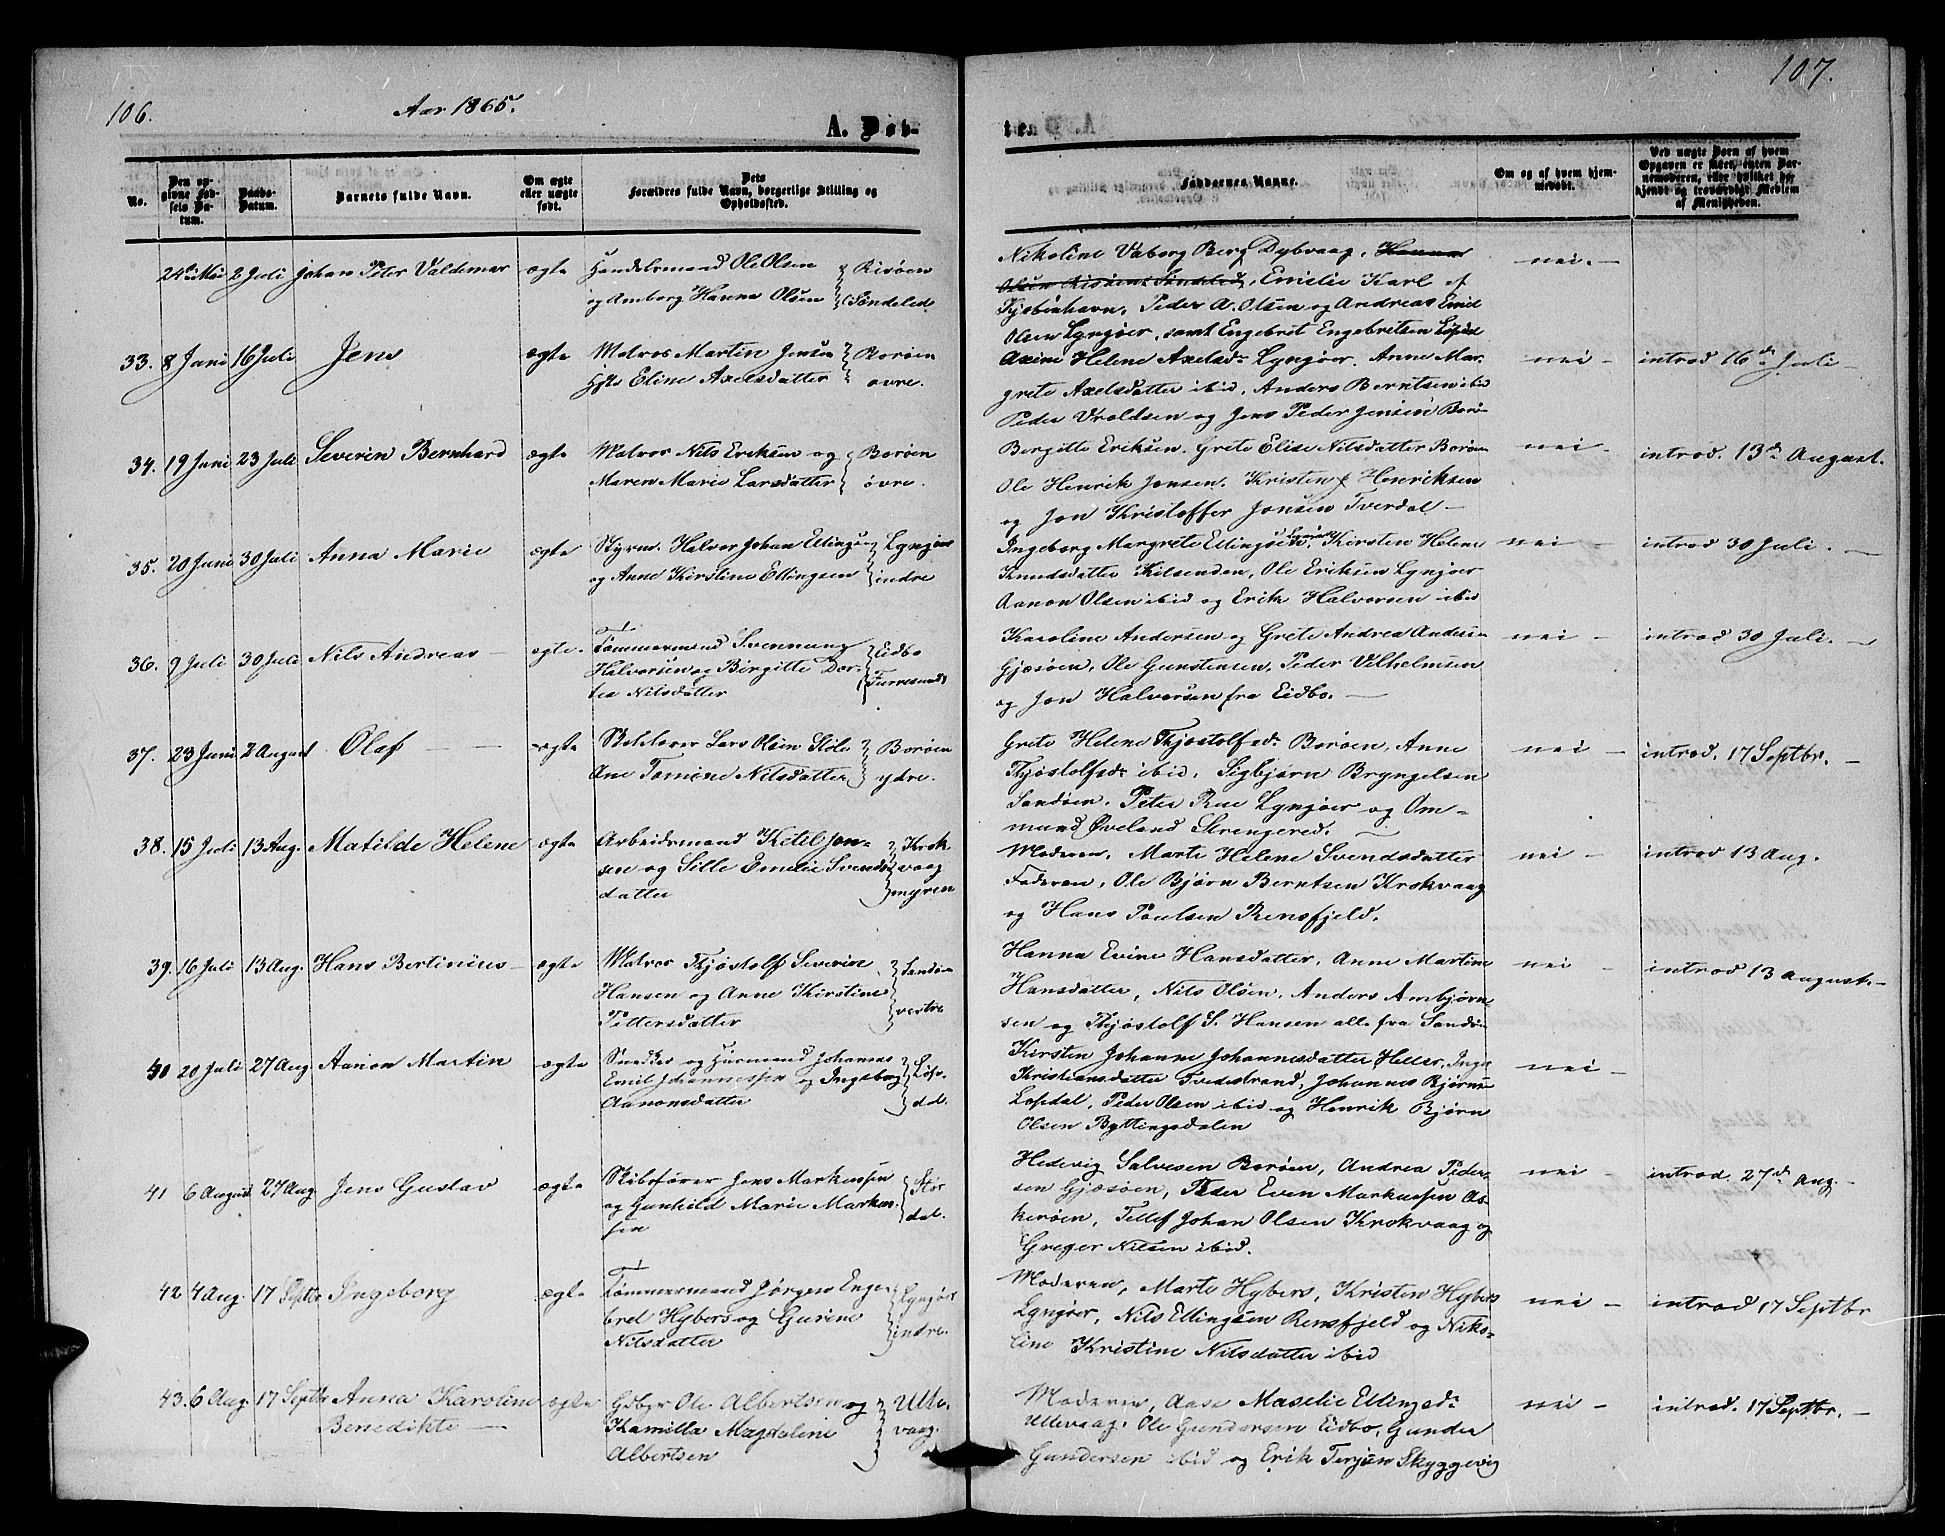 106.
Aar 1865.
A. Døb-
No.
Den op-
givne Fød-
sels Da-
tum.
Daabs-
Datum.
Barnets fulde Navn.
Om ægte
eller uægte
født.
Dets
Forældres fulde Navn, borgerlige Stilling og
Opholdssted.
24de Mai 2 Juli Johan Peter Valdemar ægte Handelsmand Ole Olsen Risøen
og Amborg Hanna Olsen Søndeled
33. 8 Juni 16 Juli Jens ægte Matros Martin Jensen Borøen
Eline Axelsdatter øvre.
34. 19 Juni 23 Juli Severin Bernhard ægte Matros Nils Eriksen og Borøen
Maren Marie Larsdatter øvre.
35. 20 Juni 30 Juli Anna Marie ægte Styrm. Halvor Johan Ellingsen Lyngøer
og Anne Kirstine Ellingsen indre
36. 9 Juli 30 Juli Nils Andreas — ægte. Tømmermand Svennung Eidbo
Halvorsen og Birgitte Dor-
tea Nilsdatter
37. 23 Juni 2 August Olaf — ægte Lars Olsen Borøen
Ane Tomine Nilsdatter ydre.
38. 15 Juli 13 Aug. Matilde Helene ægte Arbeidsmand Ketil Jon- Krok
sen og Sille Emelie Svends vaag
datter myren
39. 16 Juli 13 Aug. Hans Bertinius — ægte Matros Thjøstolf Severin Sandøen
Hansen og Anne Kirstine vestre
Pettersdatter
40 20 Juli 27 Aug. Aanon Martin ægte Snedker og Huusmand Johannes Løps-
Emil Johannessen og Ingeborg dal.
Aanonsdatter
41 6 August 27 Aug Jens Gustav ægte Skibsfører Jens Markussen Stør
og Gunhild Marie Markus- dal.
sen
42 4 Aug. 17 Septbr Ingeborg ægte Tømmermand Jørgen Enge- Lyngøer
bret Hybers og Gurine indre.
Nilsdatter
43. 6 Aug. 17 Septbr Anna Karoline ægte Gdbgr Ole Albertsen og Ulle.
Benedikte — Kamilla Magdaline vaag.
Albertsen
107.
te.
Faddernes Navne.
Om og af hvem hjem-
medøbt.
Ved uægte Børn af hvem
Opgaven er sket, enten Bar-
nemoderen, eller hvilket be-
kjendt og troværdigt Medlem
af Menigheden.
Nikoline Vaborg Berg Dybvaag, Hanna nei. —
Olsen Risøen Søndeled, Emilie Karl af
Kjøbenhavn, Peder A. Olsen og Andreas Emil
Olsen Lyngøer, samt Engebrit Engebretsen
Axine Helene Axelsdr Lyngøer. Anne Mar- nei — introd 16de Juli —
grete Axelsdatter ibid, Anders Berntsen ibid
Peder Vroldsen og Jens Peder Jensen Borø-
Borgitte Eriksen. Grete Elise Nilsdatter Borøen nei — introd. 13de August.
Ole Henrik Jensen. Kristen Henriksen
og Jon Kristoffer Jonsen Tverdal —
Ingeborg Margrete Ellingsen Lyngøer, Kirsten Helene nei — introd 30 Juli. —
Knudsdatter Kilsenden, Ole Eriksen Lyngøer
Aanon Olsen ibid og Erik Halvorsen ibid
Karoline Andersen og Grete Andrea Anders- nei — introd 30 Juli. —
Gjæsøen, Ole Gunstensen, Peder Vilhelmsen
og Jon Halvorsen fra Eidbo. —
Grete Helene Thjøstolfsdr Borøen, Anne nei — introd. 17 Septbr. —
Thjøstolfsdr ibid, Sigbjørn Bryngelsen
Sandøen, Peter Rue Lyngøer og Om-
mund Øveland Strengered. —
Moderen, Marte Helene Svendsdatter nei — introd 13 Aug.
Faderen, Ole Bjørn Berntsen Krokvaag
og Hans Poulsen Rensfjeld.
Hanna Evine Hansdatter, Anne Martine nei — introd 13 August. —
Hansdatter, Nils Olsen, Anders Ambjørn-
sen og Thjøstolf S. Hansen alle fra Sandø-
Kirsten Johanne Johannesdatter Heller, Inge nei —
Kristiansdatter Tvedestrand, Johannes Bjørns-
Løpsdal, Peder Olsen ibid og Henrik Bjørn
Olsen Byttingsdalen
Hedevig Salvesen Borøen, Andrea Peder- nei — introd 27de Aug. —
sen Gjæsøen, Peder Even Markussen As-
kerøen, Tellef Johan Olsen Krokvaag og
Greger Nilsen ibid.
Moderen, Marte Hybers, Kristen Hybers nei — introd 17 Septbr
Lyngøer, Nils Ellingsen Rensfjeld og Niko-
line Kristine Nilsdatter ibid
Moderen, Aase Maselie Ellingsdr nei — introd. 17 Septbr. —
Ullevaag, Ole Gundersen Eidbo, Gunder
Gundersen ibid og Erik Terjesen Skyggevig